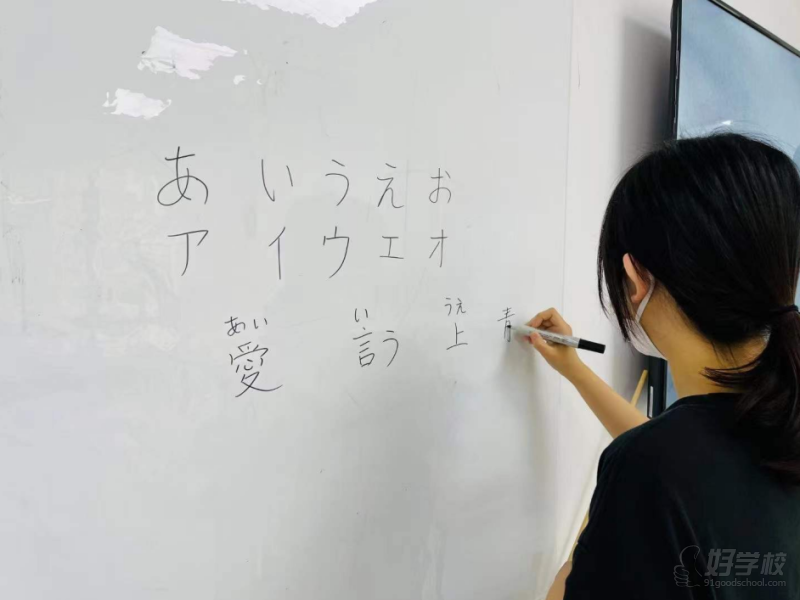 あ い う え お
ア イ ウ エ オ
あい い うえ
愛 言う 上 青
好学校
91goodschool.com